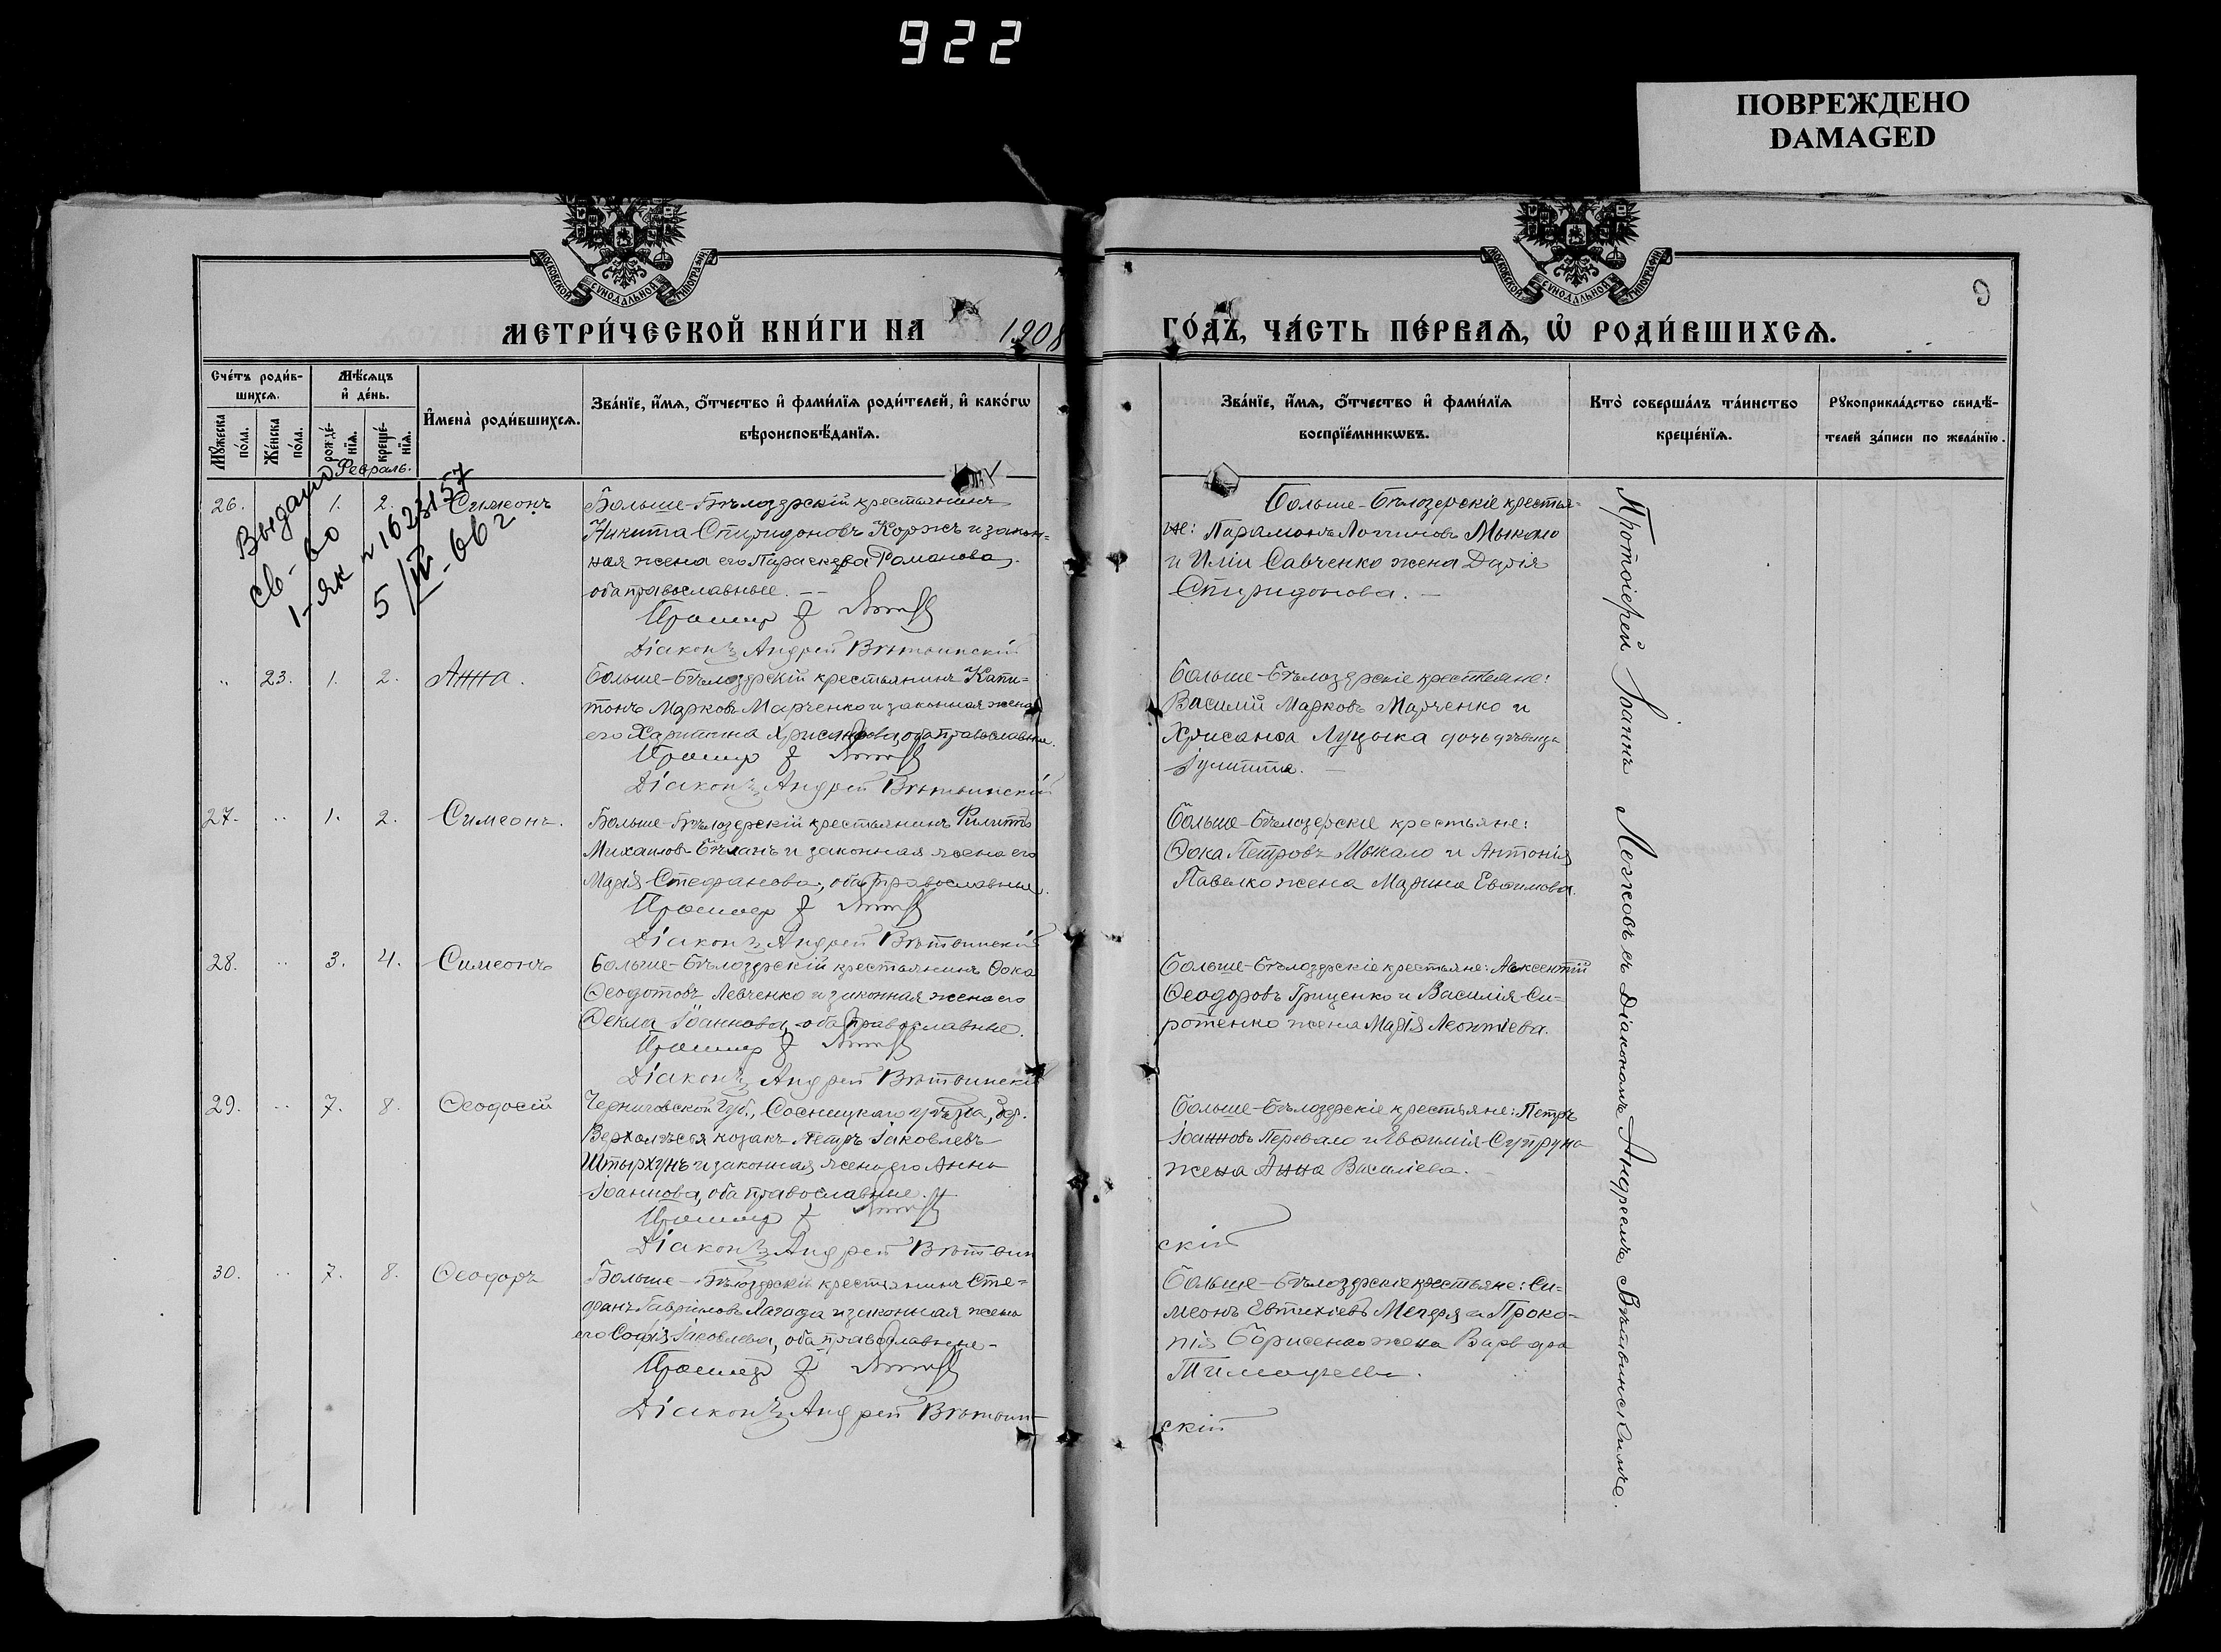 922
ПОВРЕЖДЕНО
DAMAGED
МОСКОВСКОЙ СѴНОДАЛЬНОЙ ТИПОГРАФІИ
МОСКОВСКОЙ СѴНОДАЛЬНОЙ ТИПОГРАФІИ
9
МЕТРИ́ЧЕСКОЙ КНИ́ГИ НА 1908
ГО́ДЪ, ЧА́СТЬ ПЕ́РВАЯ, Ѡ РОДИ́ВШИХСЯ.
Сче́тъ роди́в-
шихся.
Мѣ́сяцъ
и де́нь.
Мꙋ́жеска по́ла.
Же́нска по́ла.
рожде́-
нїя.
креще́-
нїя.
Имена̀ роди́вшихся.
Зва́нїе, и́мя, о́тчество и фами́лїя роди́телей, и како́гѡ
вѣроисповѣ́данїя.
Зва́нїе, и́мя, о́тчество и фами́лїя
воспрїе́мникѡвъ.
Кто̀ соверша́лъ та́инство
креще́нїя.
Рꙋкоприкла́дство свидѣ́-
телей за́писи по жела́нїю.
Февраль.
26. 1. 2. Симеонъ
Выдано
св-во
1-ЯК № 1623157
5/IV-66 г
Больше-Бѣлозерскій крестьянинъ
Никита Спиридоновъ Коржъ и закон-
ная жена его Параскева Романова,
оба православные.
Діаконъ Андрей Вѣтвинскій
Больше-Бѣлозерскіе крестья-
не: Парамонъ Логиновъ Мыкало
и Иліи Савченко жена Дарія
Спиридонова.
" 23. 1. 2. Анна.
Больше-Бѣлозерскій крестьянинъ Капи-
тонъ Марковъ Марченко и законная жена
его Харитина Хрисанфова, оба православные.
Діаконъ Андрей Вѣтвинскій
Больше-Бѣлозерскіе крестьяне:
Василій Марковъ Марченко и
Хрисанѳа Луцыка дочь дѣвица
Іулитта.
27. " 1. 2. Симеонъ.
Больше-Бѣлозерскій крестьянинъ Филиппъ
Михаиловъ Бѣланъ и законная жена его
Марія Стефанова, оба православные.
Діаконъ Андрей Вѣтвинскій
Больше-Бѣлозерскіе крестьяне:
Ѳока Петровъ Мыкало и Антонія
Павелко жена Марина Евѳимова.
28. " 3. 4. Симеонъ
Больше-Бѣлозерскій крестьянинъ Ѳока
Ѳеодотовъ Левченко и законная жена его
Ѳекла Іоаннова, оба православные.
Діаконъ Андрей Вѣтвинскій
Больше-Бѣлозерскіе крестьяне: Авксентій
Ѳеодоровъ Гриценко и Василія Си-
ротенко жена Марія Леонтіева.
29. " 7. 8. Ѳеодосій
Черниговской Губ., Сосницкаго уѣзда, дер.
Верхолѣсья козакъ Петръ Іаковлевъ
Штырхунъ и законная жена его Анна
Іоаннова, оба православные.
Діаконъ Андрей Вѣтвин
скій
Больше-Бѣлозерскіе крестьяне: Петръ
Іоанновъ Перевало и Евѳимія Супруна
жена Анна Василіева.
30. " 7. 8. Ѳеодоръ
Больше-Бѣлозерскій крестьянинъ Сте-
фанъ Гавріиловъ Лагода и законная жена
его Софія Іаковлева, оба православные.
Діаконъ Андрей Вѣтвин-
скій
Больше-Бѣлозерскіе крестьяне: Си-
меонъ Евтихіевъ и Проко-
пія Борисенко жена Варвара
Тимофеева.
Протоіерей Іоаннъ съ Діакономъ Андреемъ Вѣтвинскимъ.